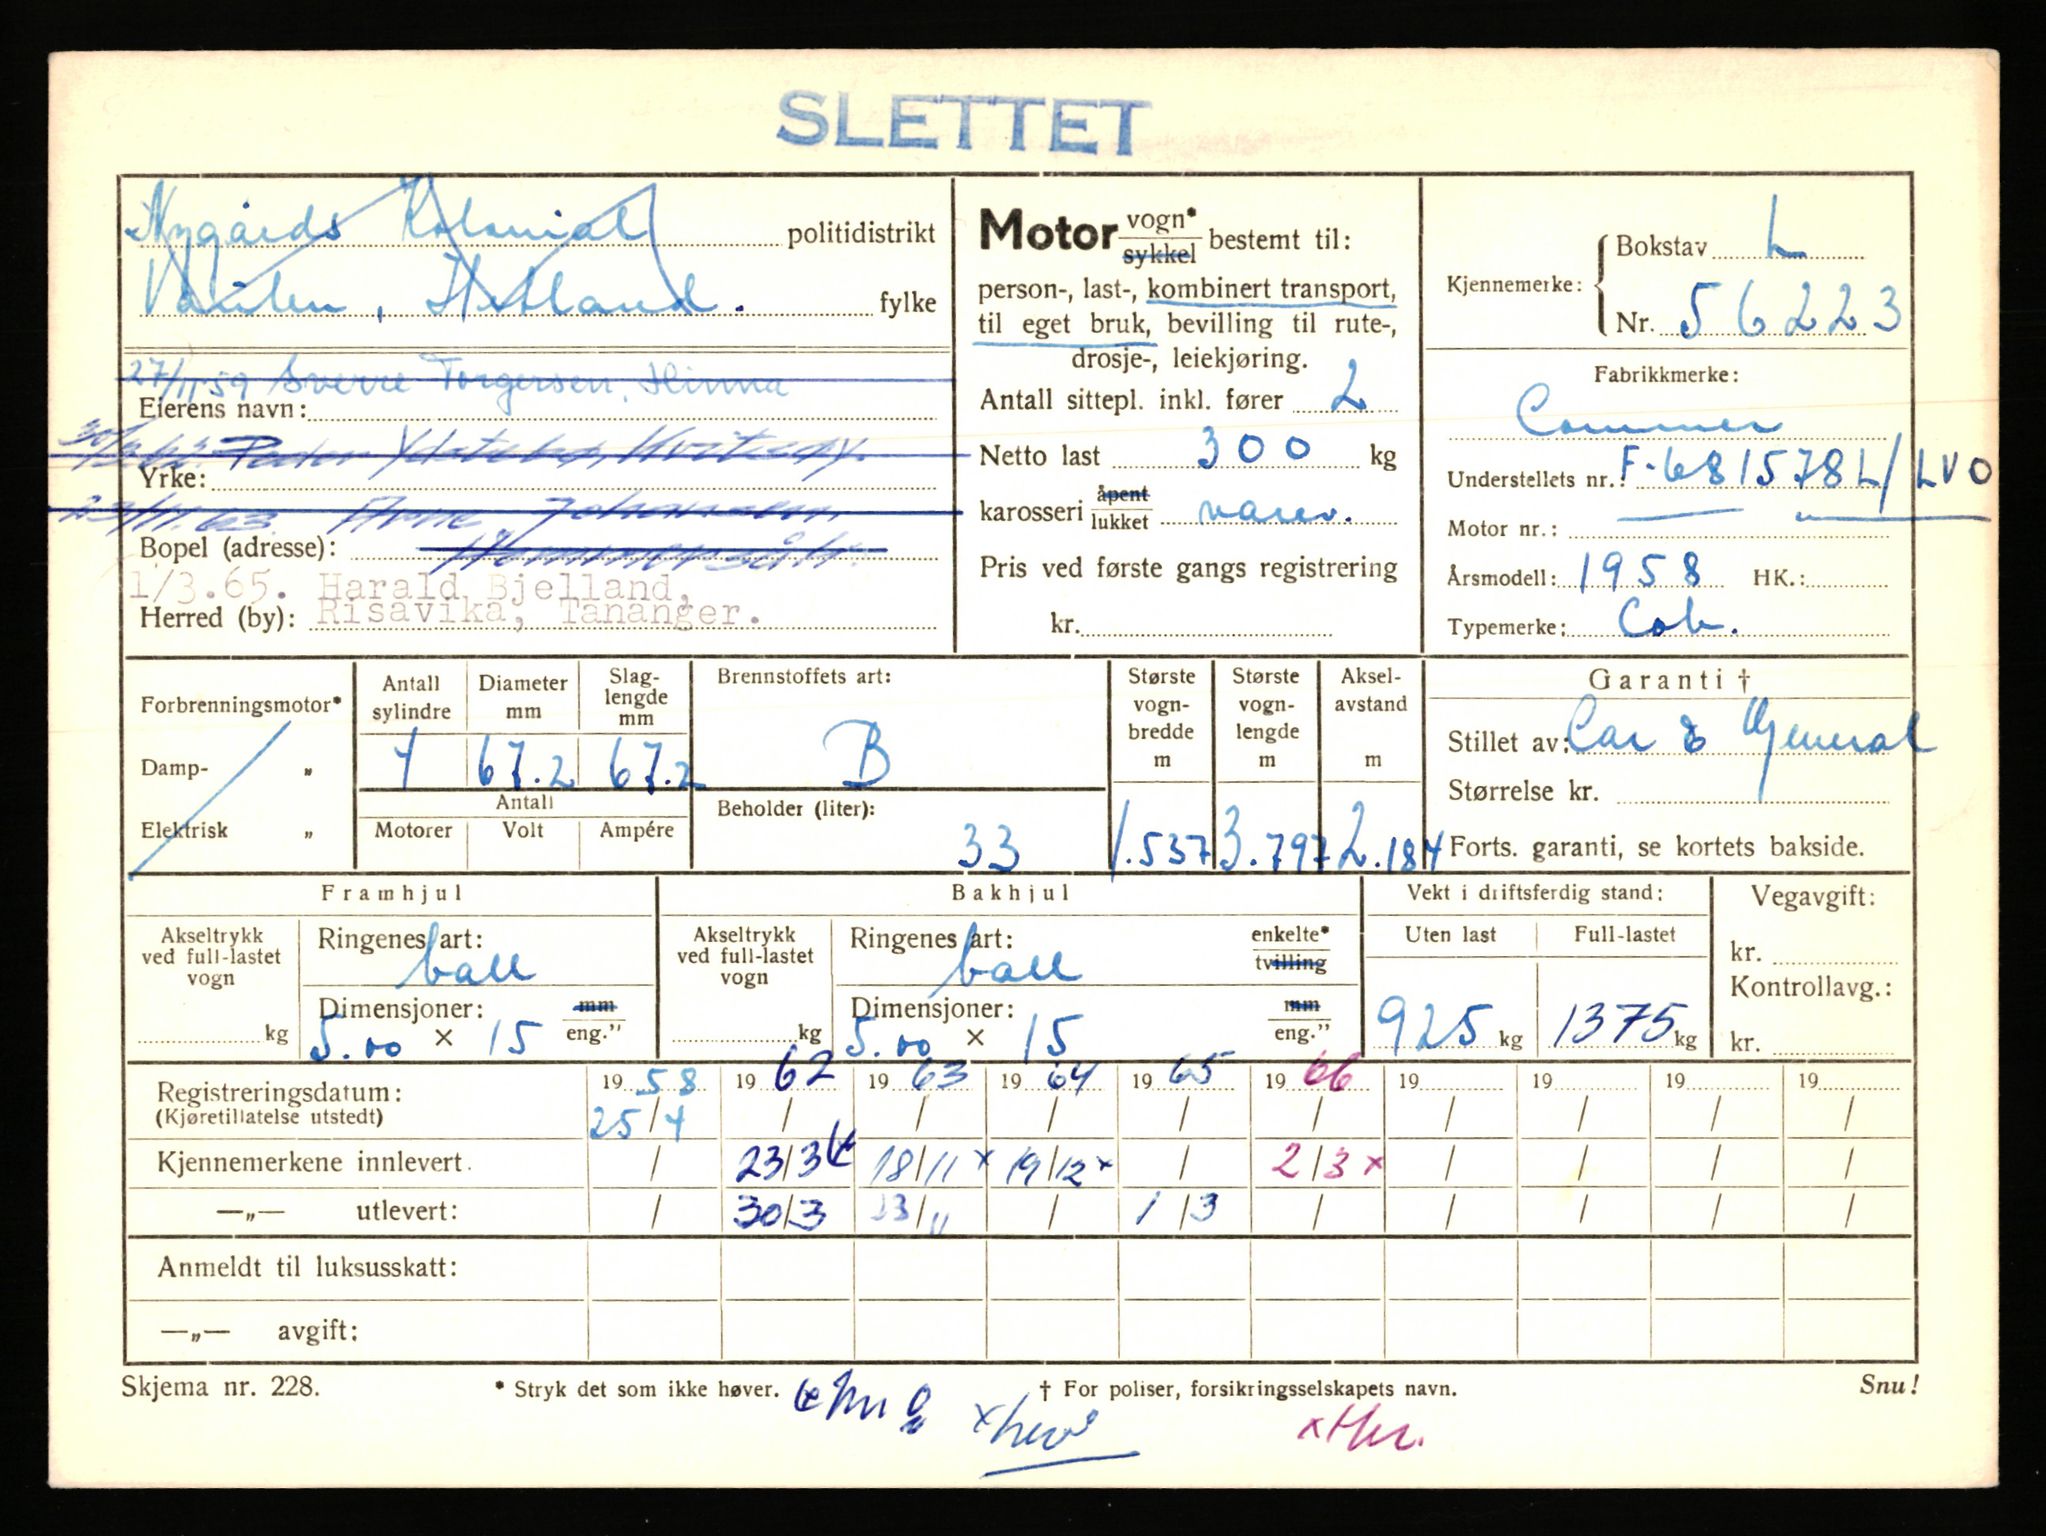 SLETTET
Nygårds Kolonial politidistrikt
Vaulen, Hetland. fylke
27/11 59 Sverre Torgersen, Hinna
Eierens navn:
30/3 62. Peder Ydstebø, Kvitsøy.
Yrke:
23/11. 63. Arne Johansen,
Bopel (adresse): Hommersåk.
1/3.65. Harald Bjelland,
Herred (by): Risavika, Tananger.
Motor vogn* / sykkel bestemt til:
person-, last-, kombinert transport,
til eget bruk, bevilling til rute-,
drosje-, leiekjøring.
Antall sittepl. inkl. fører 2
Netto last 300 kg
karosseri åpent / lukket varev.
Pris ved første gangs registrering
kr.
Kjennemerke: Bokstav L
Nr. 56223
Fabrikkmerke:
Commer
Understellets nr.: F-681578L/LVO
Motor nr.:
Årsmodell: 1958 HK.:
Typemerke: Cob.
Forbrenningsmotor*
Damp- „
Elektrisk „
Antall sylindre Diameter mm Slag-lengde mm
4 67.2 67.2
Antall
Motorer Volt Ampére
Brennstoffets art:
B
Beholder (liter):
33
Største vogn-bredde m Største vogn-lengde m Aksel-avstand m
1.537 3.797 2.184
Garanti †
Stillet av: Car & General
Størrelse kr.
Forts. garanti, se kortets bakside.
Framhjul
Akseltrykk ved full-lastet vogn
kg
Ringenes art:
ball
Dimensjoner: mm
5.00 × 15 eng."
Bakhjul
Akseltrykk ved full-lastet vogn
kg
Ringenes art: enkelte*
ball tvilling
Dimensjoner: mm
5.00 × 15 eng."
Vekt i driftsferdig stand:
Uten last Full-lastet
925 kg 1375 kg
Vegavgift:
kr.
Kontrollavg.:
kr.
Registreringsdatum: 1958 1962 1963 1964 1965 1966 19 19 19 19
(Kjøretillatelse utstedt) 25/4 / / / / / / / / /
Kjennemerkene innlevert. / 23/3 18/11 x 19/12 x / 2/3 x / / / /
—„— utlevert: / 30/3 23/11 / 1/3 / / / / /
Anmeldt til luksusskatt:
—„— avgift:
Skjema nr. 228. * Stryk det som ikke høver. † For poliser, forsikringsselskapets navn. Snu!